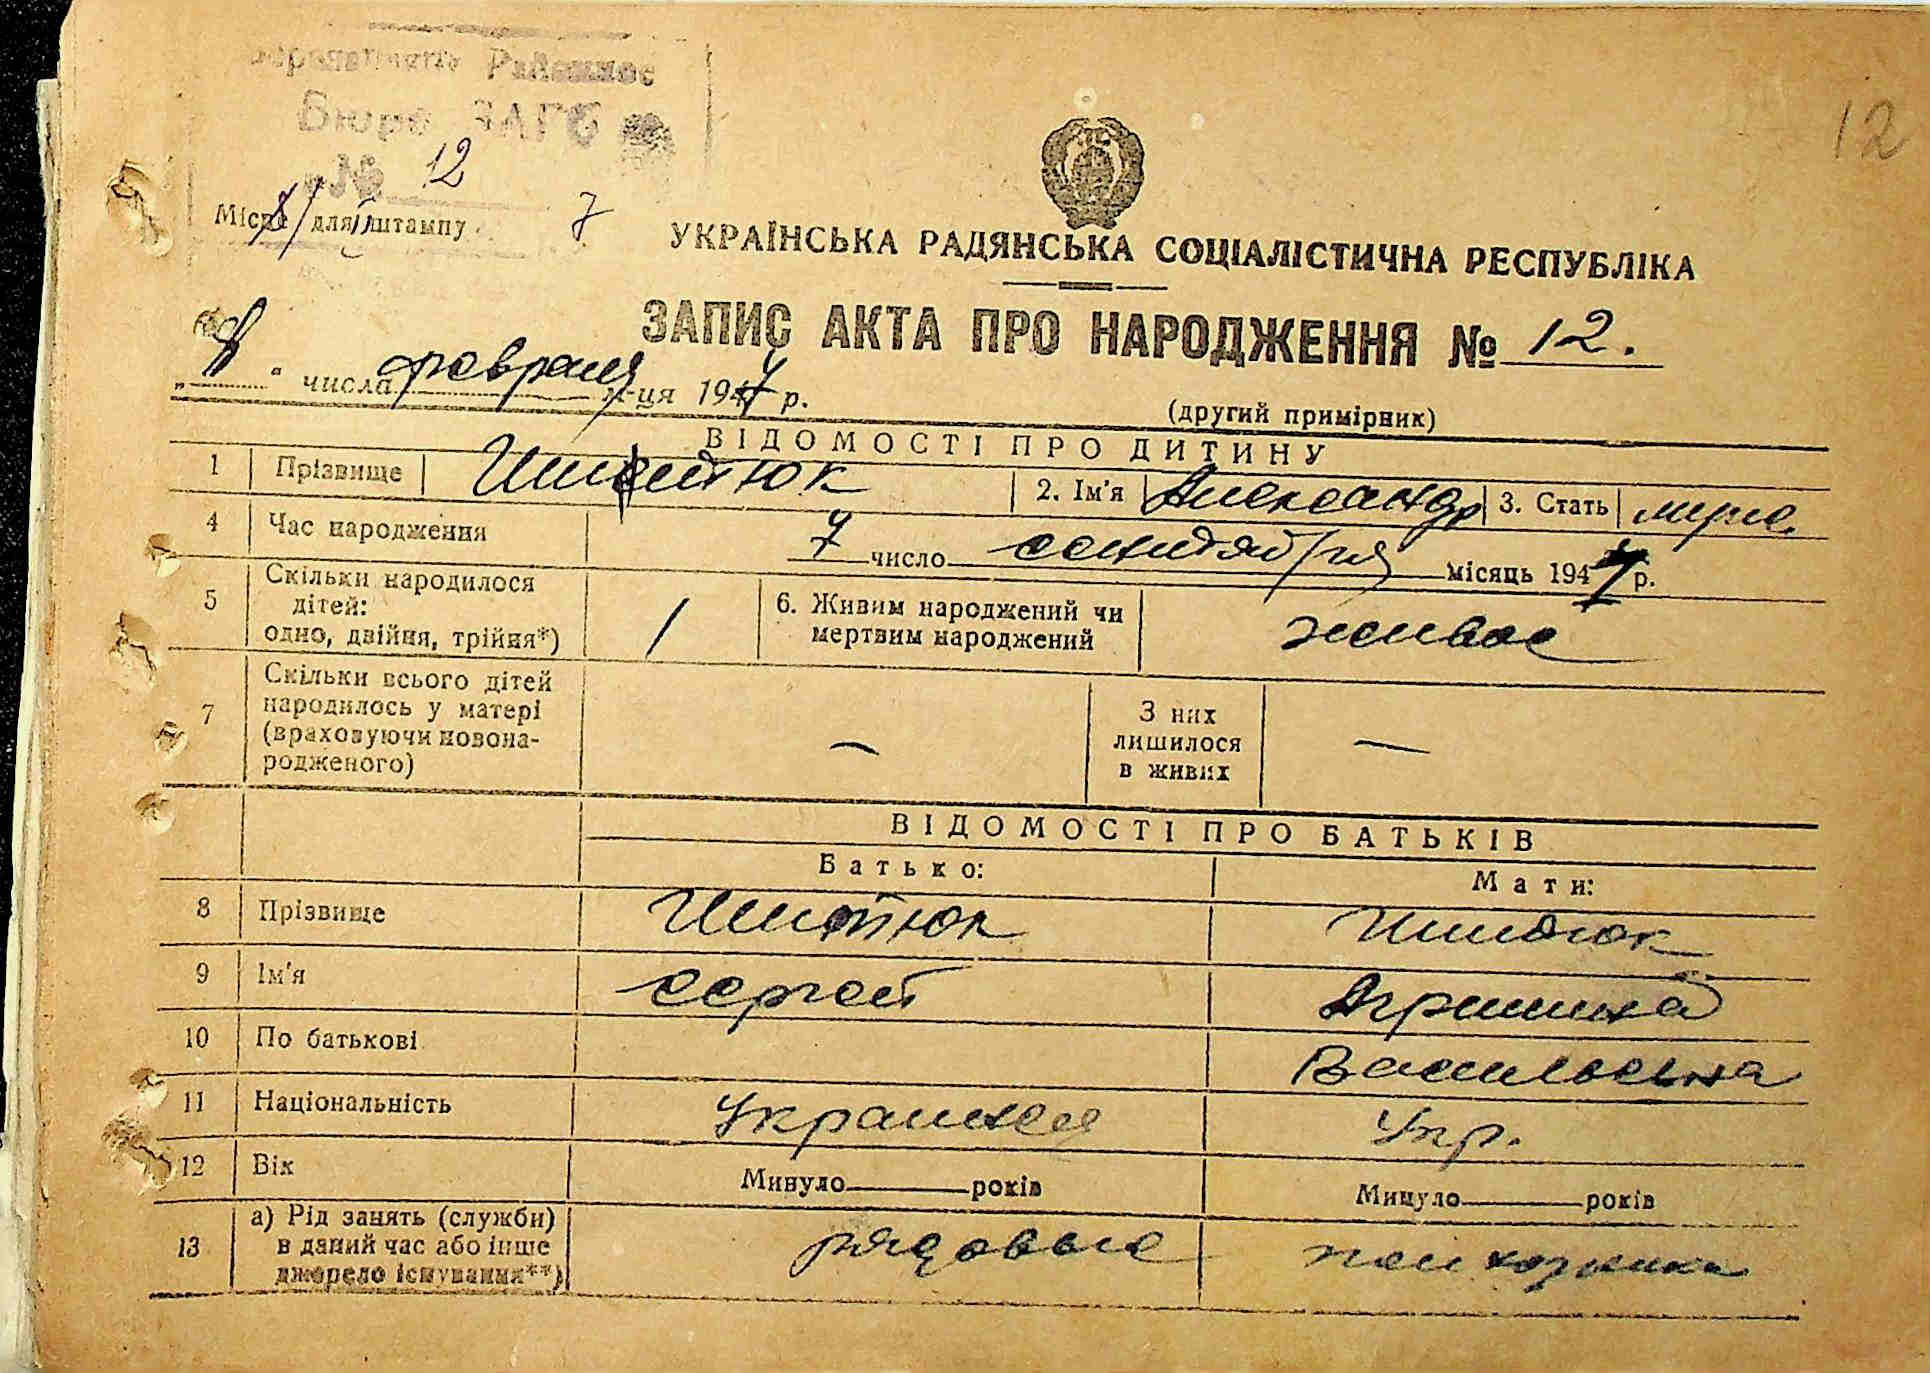 Районное
Бюро ЗАГС
№ 12
12
Місце для штампу
8/II 7
УКРАЇНСЬКА РАДЯНСЬКА СОЦІАЛІСТИЧНА РЕСПУБЛІКА
ЗАПИС АКТА ПРО НАРОДЖЕННЯ № 12.
„8“ числа февраля м-ця 1947 р.
(другий примірник)
ВІДОМОСТІ ПРО ДИТИНУ
1 Прізвище 2. Ім'я Александр 3. Стать муж.
4 Час народження 7 число сентября місяць 1947 р.
5 Скільки народилося
дітей:
одно, двійня, трійня*) 1
6. Живим народжений чи
мертвим народжений живое
7 Скільки всього дітей
народилось у матері
(враховуючи новона-
родженого) —
З них
лишилося
в живих —
ВІДОМОСТІ ПРО БАТЬКІВ
Батько: Мати:
8 Прізвище
9 Ім'я Сергей
10 По батькові Васильевна
11 Національність Укр.
12 Вік Минуло року років Минуло років
13 а) Рід занять (служби)
в даний час або інше
джерело існування**)
рядовые